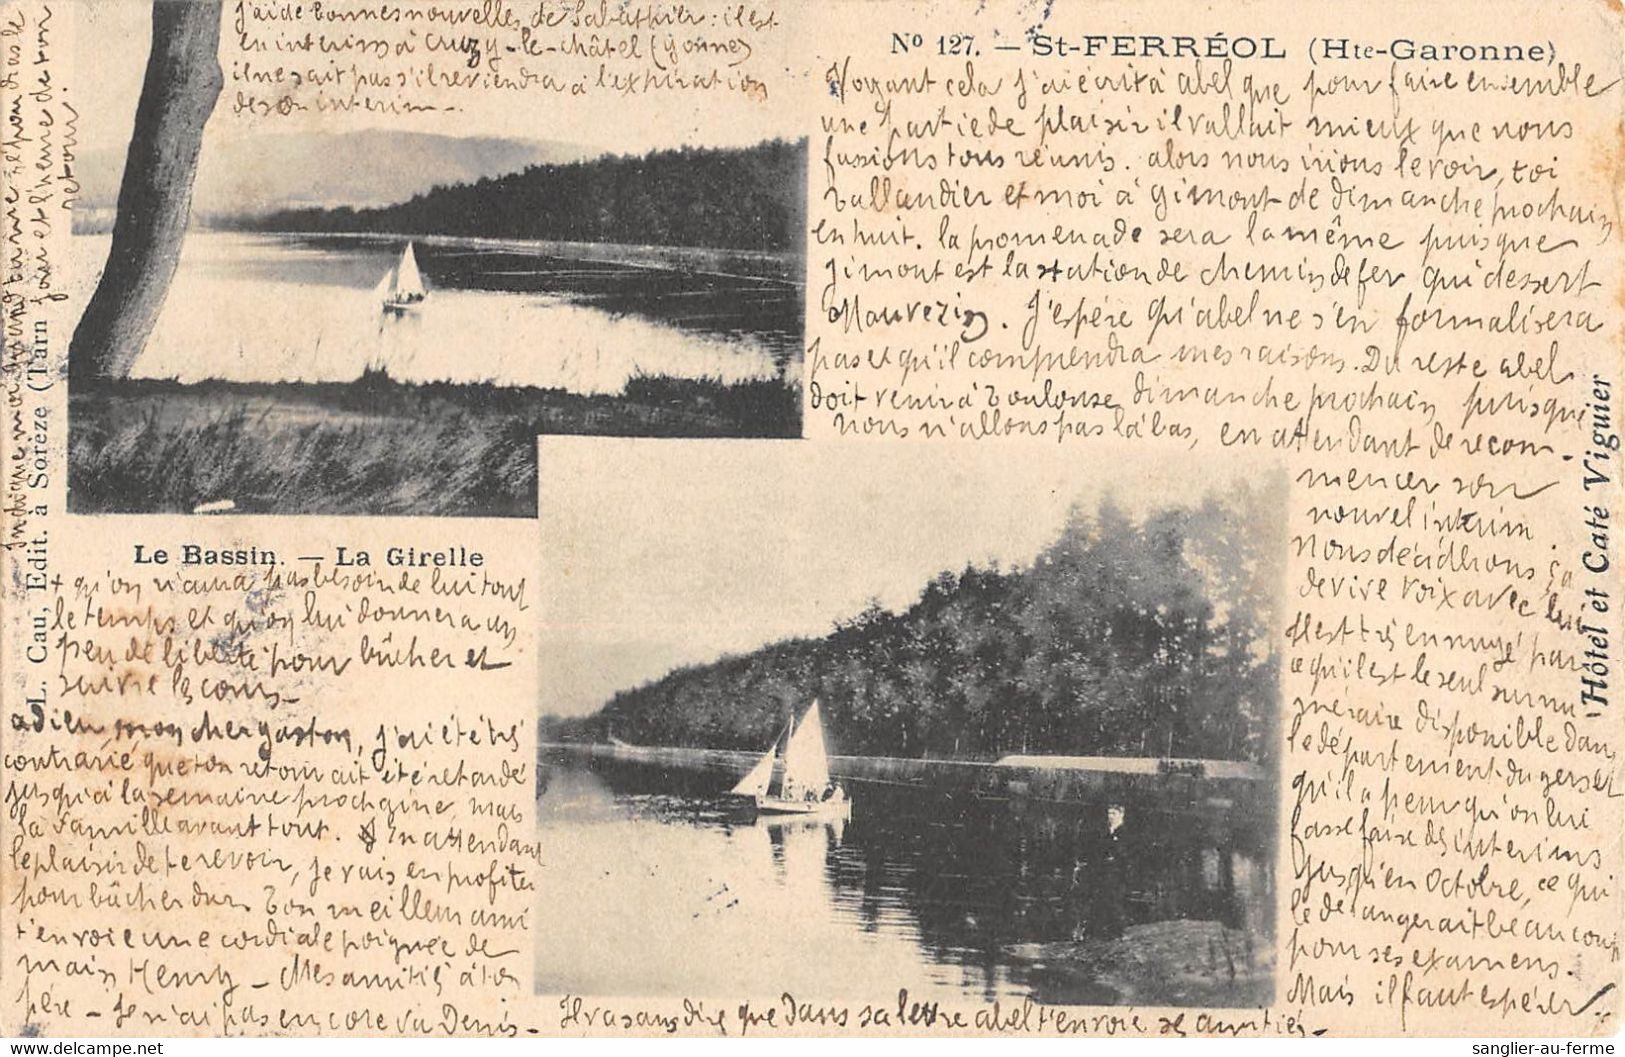 j'ai de bonnes nouvelles de Sabathier : il est
en interim à Cruzy-le-châtel (Yonne)
il ne sait pas s'il reviendra à l'expiration
de son interim -.
No 127. — St-FERRÉOL (Hte-Garonne)
Voyant cela j'ai écrit à abel que pour faire ensemble
une partie de plaisir il vallait mieux que nous
fussions tous réunis. alors nous irions le voir, toi
ballandier et moi à Gimont de dimanche prochain
en huit. la promenade sera la même puisque
Gimont est la station de chemin de fer qui dessert
Mauvezin. J'espère qu'abel ne s'en formalisera
pas et qu'il comprendra mes raisons. Du reste abel
doit venir à Toulouse dimanche prochain, puisque
nous n'allons pas là bas, en attendant de recom-
mencer son
nouvel interim.
Nous décidérons ça
de vive voix avec lui
Il est très ennuyé par
ce qu'il est le seul surnu-
méraire disponible dans
le département du gers et
qu'il a peur qu'on lui
fasse faire des interims
jusqu'en Octobre, ce qui
le dérangerait beaucoup
pour ses examens.
Mais il faut espérer
Hôtel et Café Viguier
Le Bassin. — La Girelle
+ qu'on n'aura pas besoin de lui tout
le temps et qu'on lui donnera un
peu de liberté pour bûcher et
suivre les cours -
adieu, mon cher gaston, j'ai été très
contrarié que ton retour ait été retardé
jusqu'à la semaine prochaine, mais
la famille avant tout. En attendant
le plaisir de te revoir, je vais en profiter
pour bûcher dur. Ton meilleur ami
t'envoie une cordiale poignée de
main Henry - Mes amitiés à ton
père - Je n'ai pas encore vu Denis -
Il va sans dire que dans sa lettre abel t'envoie ses amitiés -
L. Cau, Edit. à Sorèze (Tarn
jour et l'heure de ton
retour.
delcampe.net
sanglier-au-ferme